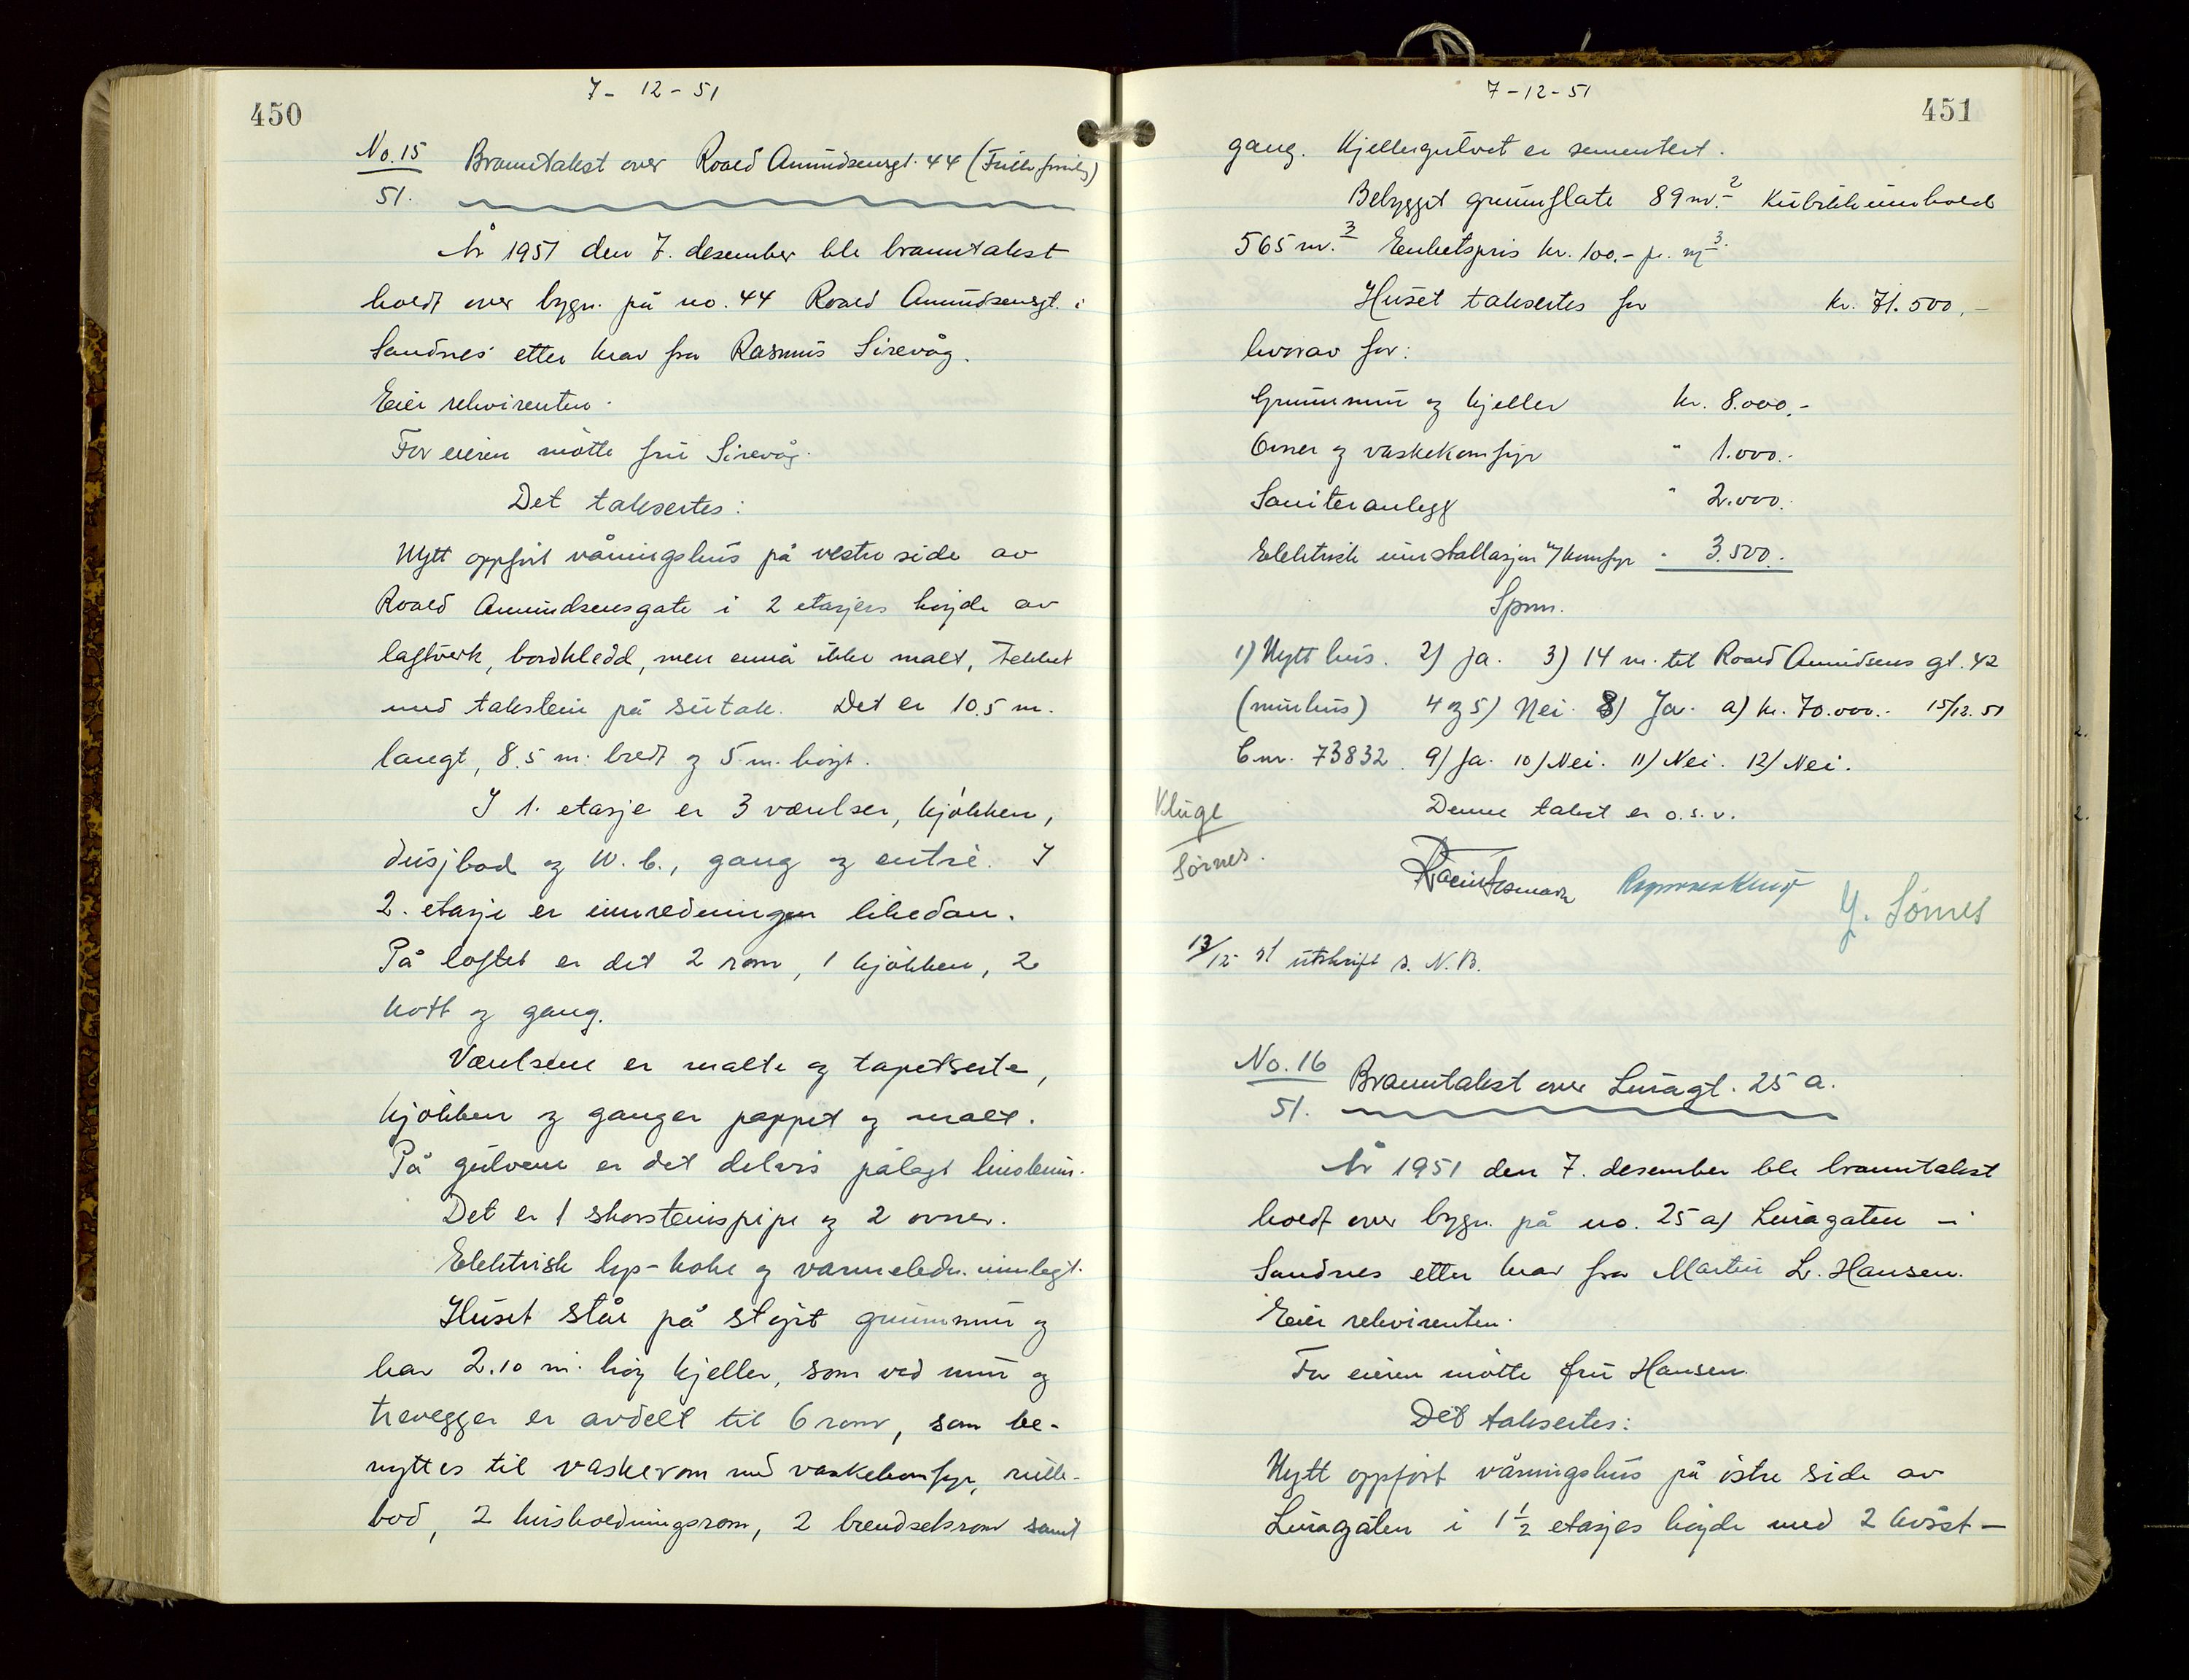 450
7- 12- 51
No. 15 Branntakst over Roald Amundsensgt. 44
51.
År 1951 den 7. desember ble branntakst
holdt over bygn. på no. 44 Roald Amundsensgt. i
Sandnes etter krav fra Rasmus Sirevåg.
Eier rekvirenten.
For eieren møtte fru Sirevåg.
Det takseertes:
Nytt oppført våningshus på vestre side av
Roald Amundsensgate i 2 etasjers høyde av
laftverk, bordkledd, men ennå ikke malt, tekket
med takstein på sutak. Det er 10.5 m.
langt, 8.5 m. bredt og 5 m. høyt.
I 1. etasje er 3 værelser, kjøkken,
dusjbad og W.C., gang og entré. I
2. etasje er innredningen likedan.
På loftet er det 2 rom, 1 kjøkken, 2
kott og gang.
Værelsene er malte og tapetserte,
kjøkken og ganger pappet og malt.
På gulvene er det delvis pålagt linoleum.
Det er 1 skorsteinspipe og 2 ovner.
Elektrisk lys- koke og varmeledn. innlagt.
Huset står på støpt grunnmur og
har 2.10 m. høy kjeller, som ved mur og
trevegger er avdelt til 6 rom, som be-
nyttes til vaskerom med vaskekomfyr, rulle-
bod, 2 husholdningsrom, 2 brendselsrom samt
451
7-12-51
gang. Kjellergulvet er sementert.
Bebygget grunnflate 89 m.2 Kubikkinnhold
565 m.3 Enhetspris kr. 100.- pr. m3.
Huset takseertes for kr. 71.500,-
hvorav for:
Grunnmur og kjeller kr. 8.000.-
Ovner og vaskekomfyr " 1.000.-
Saniteranlegg " 2.000.
Elektrisk innstallasjon m/komfyr " 3.500.-
Spm.
1) Nytt hus. 2) Ja. 3) 14 m. til Roald Amundsens gt. 42
(murhus) 4 og 5) Nei. 8) Ja. a) kr. 70.000.- 15/12.51
b nr. 73832. 9) Ja. 10) Nei. 11) Nei. 12) Nei.
Denne takst er o.s.v.
Kluge
Sørnes.
Y. Sørnes
13/12 51 utskrift s. N.B.
No. 16 Branntakst over Luragt. 25 a.
51.
År 1951 den 7. desember ble branntakst
holdt over bygn. på no. 25 a) Luragaten i
Sandnes etter krav fra Martin L. Hansen.
Eier rekvirenten.
For eieren møtte fru Hansen.
Det takseertes:
Nytt oppført våningshus på østre side av
Luragaten i 1 1/2 etasjes høyde med 2 kvist-